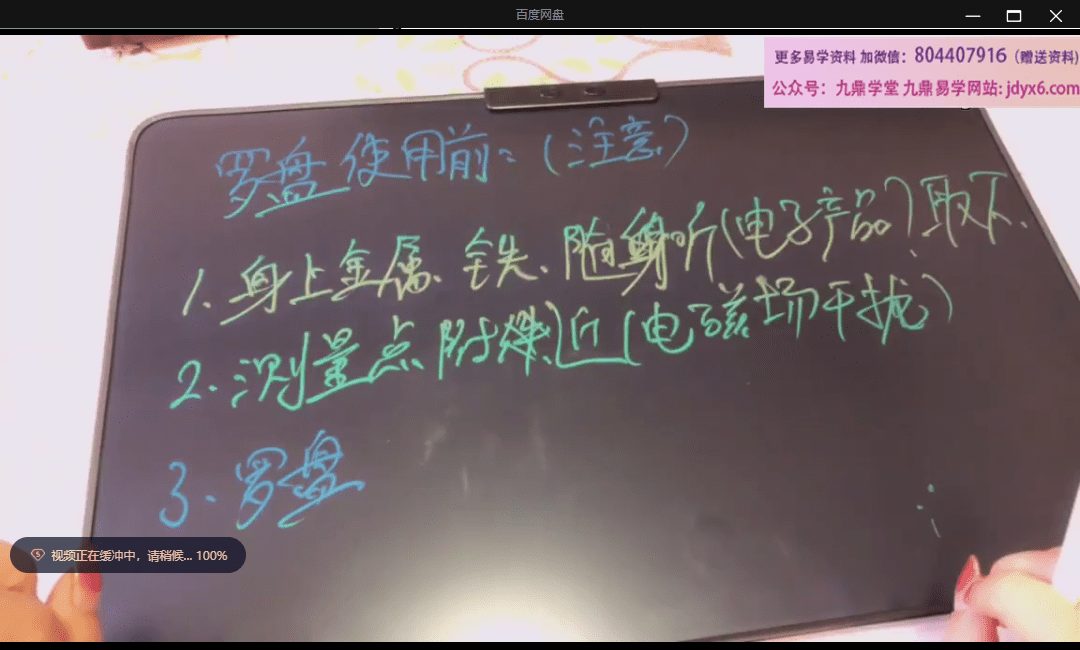 百度网盘
更多易学资料 加微信：804407916（赠送资料）
公众号：九鼎学堂 九鼎易学网站: jdyx6.com
罗盘使用前：（注意）
1、身上金属、铁、随身听（电子产品）取下、
2. 测量点附近（电磁场干扰）
3、罗盘
视频正在缓冲中，请稍候... 100%